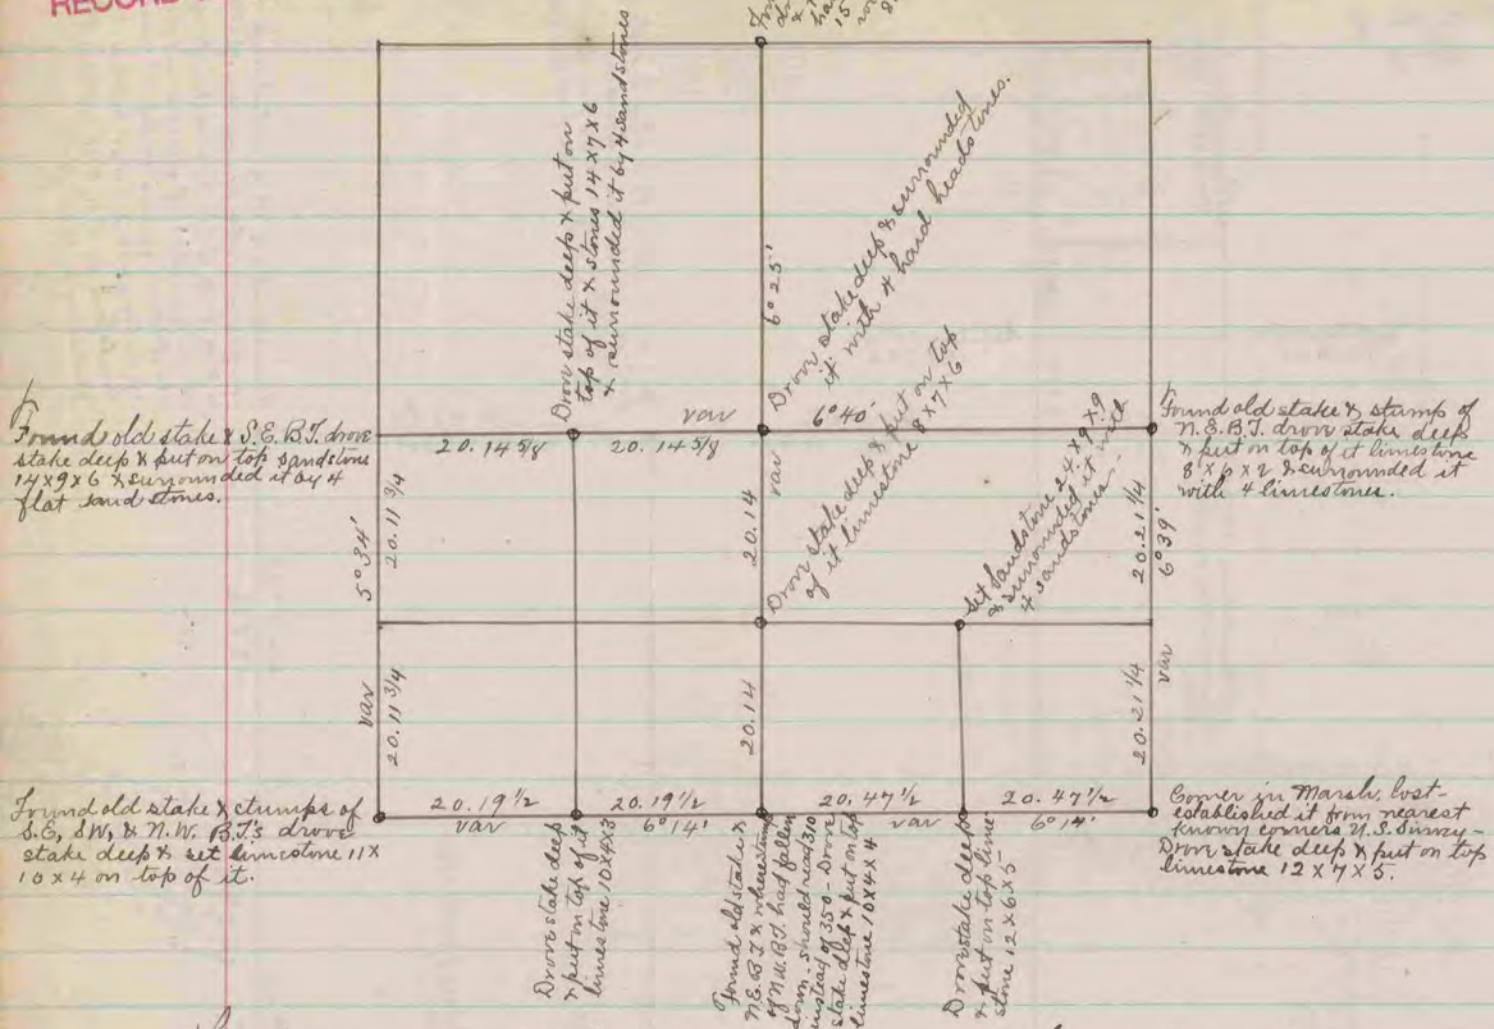 RECORD
Drove stake deep & put on
top of it & stones 14 X 7 X 6
& surrounded it by 4 sandstones
6° 25'
Drove stake deep & surrounded
it with 4 hard heads tones.
Found old stake & S.E. B.T. drove
stake deep & put on top sandstone
14 x 9 x 6 & surrounded it by 4
flat sand stones.
20.14 5/8
20.14 5/8
var
6° 40'
Found old stake & stump of
N.E. B.T. drove stake deep
& put on top of it limestone
8 X 6 X 2 & surrounded it
with 4 limestones.
5° 34'
20.11 3/4
20.14
var
Drove stake deep & put on top
of it limestone 8 X 7 X 6
Set Sandstone 24 X 9 X 9
& surrounded it with
4 sandstones-
20.21 1/4
6° 39'
var
20.11 3/4
20.14
20.21 1/4
var
Found old stake & stumps of
S.E, SW, & N.W. B.T's drove
stake deep & set limestone 11 X
10 X 4 on top of it.
20.19 1/2
var
20.19 1/2
6° 14'
20.47 1/2
var
20.47 1/2
6° 14'
Corner in Marsh, lost-
established it from nearest
known corners U.S. Survey-
Drove stake deep & put on top
limestone 12 X 7 X 5.
Drove stake deep
& put on top of it
limestone 10 X 4 X 3
Found old stake &
N.E. B T & where stump
of N.W. B T. had fallen
down - should read 310
instead of 350 - Drove
stake deep & put on top
limestone 10 X 4 X 4
Drove stake deep
& put on top lime-
stone 12 X 6 X 5